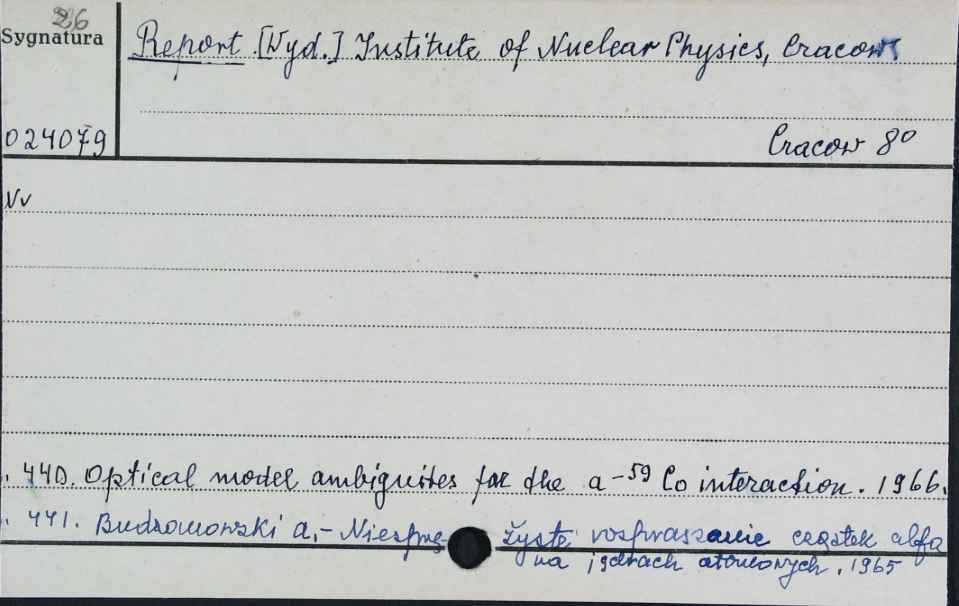 26
Sygnatura
Report [Wyd.] Institute of Nuclear Physics, Cracow
024079
Cracow 8°
Nv
. 440. Optical model ambiguites for the a-⁵⁹Co interaction. 1966.
. 441. Budzanowski A,- Niesprężyste rozpraszanie cząstek alfa
na jądrach atomowych. 1965